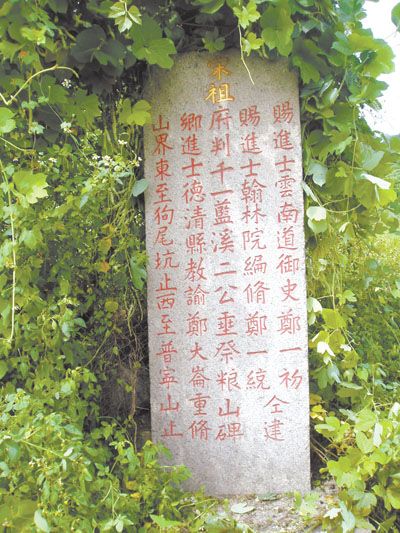 賜進士雲南道御史鄭一初仝建
賜進士翰林院編脩鄭一統
宋祖府判千一藍溪二公垂祭粮山碑
鄉進士德清縣教諭鄭大崙重脩
山界東至狗尾坑止西至普寧山止